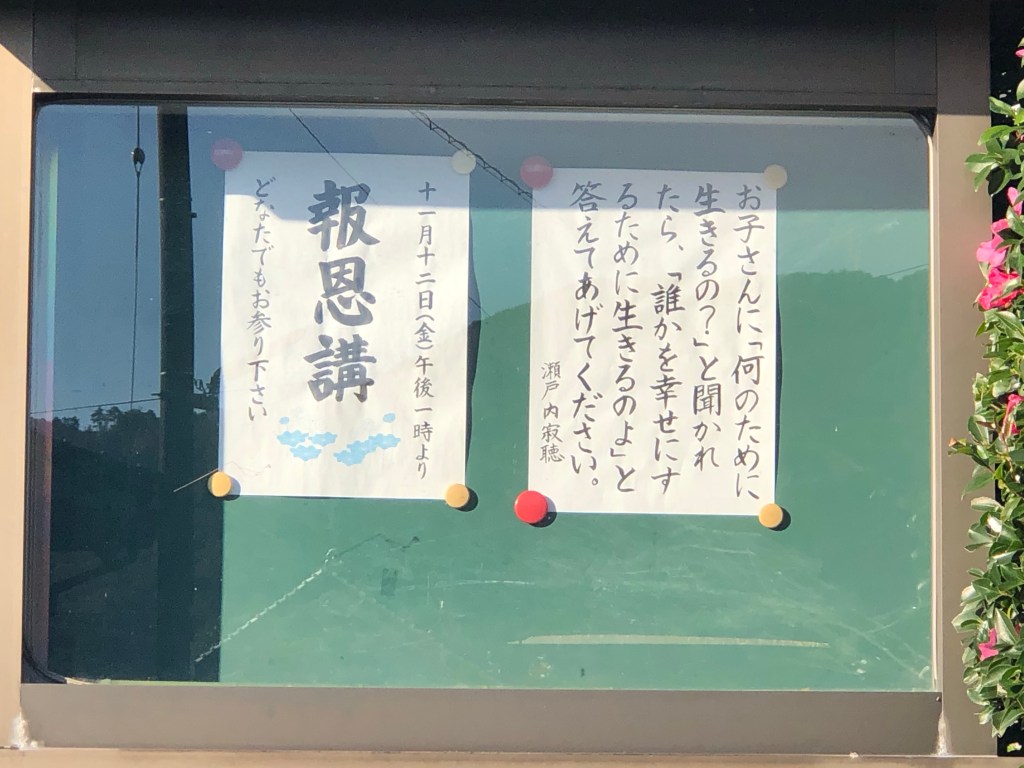 お子さんに「何のために
生きるの?」と聞かれ
たら、「誰かを幸せにす
るために生きるのよ」と
答えてあげてください。
瀬戸内寂聴
十一月十二日(金)午後一時より
報恩講
どなたでもお参り下さい